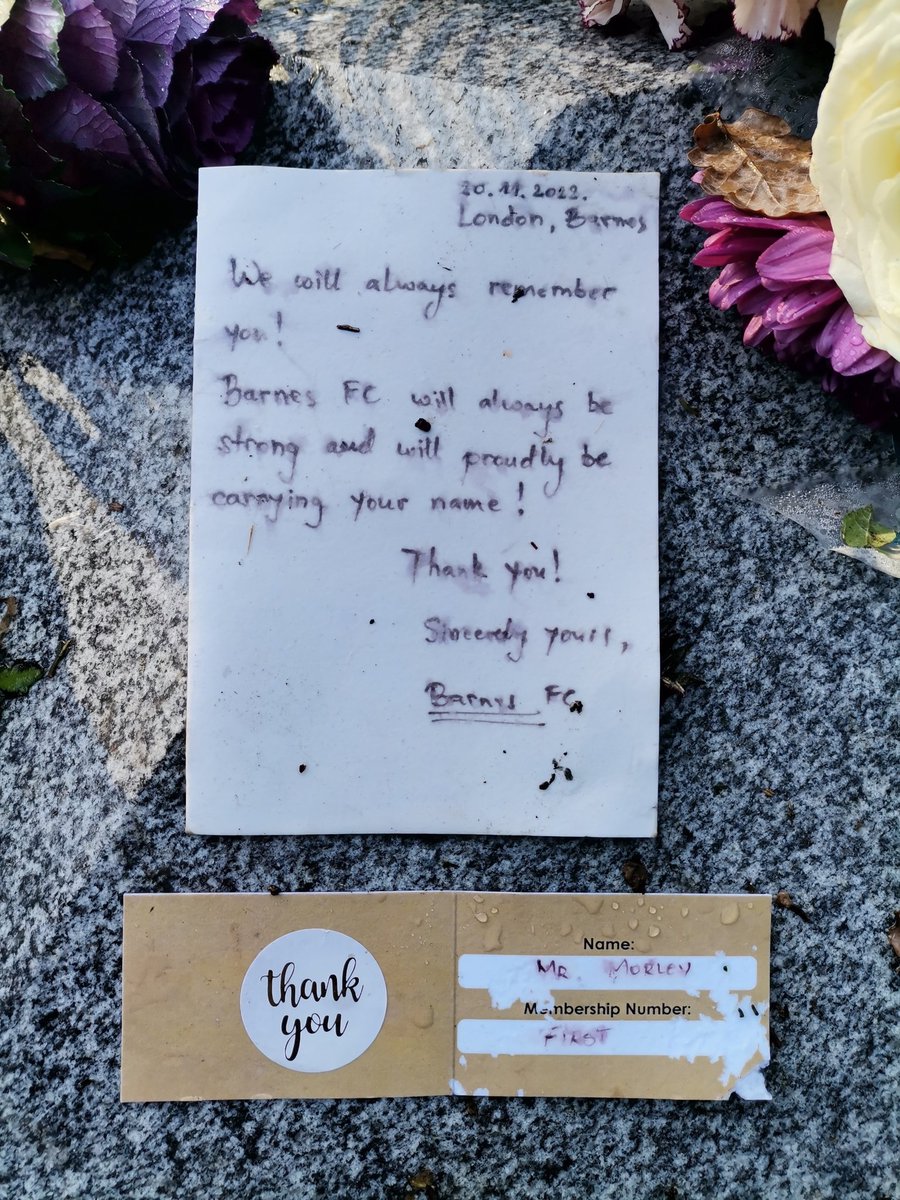 20.11.2022.
London, Barnes
We will always remember
you!
Barnes FC will always be
strong and will proudly be
carrying your name!
Thank you!
Sincerely yours,
Barnes FC
thank
you
Name:
MR. MORLEY
Membership Number:
FIRST